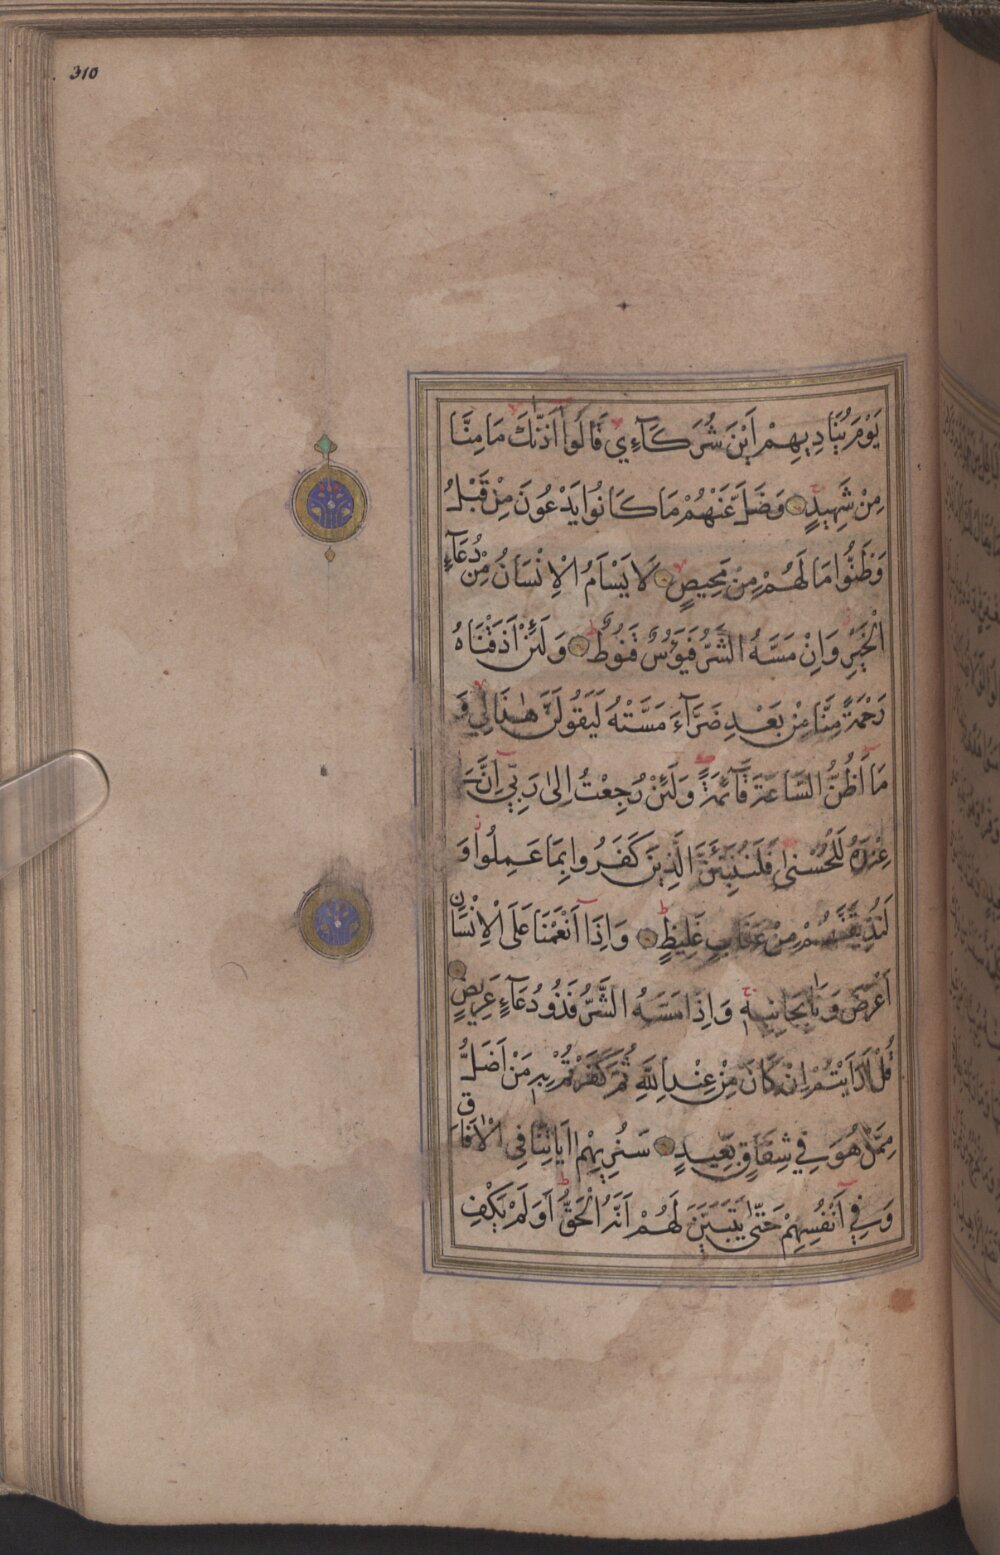 310
يَوْمَ يُنَادِيهِمْ اَيْنَ شُرَكَآءِي قَالُوا اٰذَنّٰكَ مَا مِنَّا
مِنْ شَهِيدٍ وَضَلَّ عَنْهُمْ مَا كَانُوا يَدْعُونَ مِنْ قَبْلُ
وَظَنُّوا مَا لَهُمْ مِنْ مَحِيصٍ لَا يَسْاَمُ الْاِنْسَانُ مِنْ دُعَآءِ
الْخَيْرِ وَاِنْ مَسَّهُ الشَّرُّ فَيَؤُسٌ قَنُوطٌ وَلَئِنْ اَذَقْنَاهُ
رَحْمَةً مِنَّا مِنْ بَعْدِ ضَرَّآءَ مَسَّتْهُ لَيَقُولَنَّ هٰذَا لِي وَ
مَا اَظُنُّ السَّاعَةَ قَآئِمَةً وَلَئِنْ رُجِعْتُ اِلٰى رَبِّي اِنَّ لِي
عِنْدَهُ لَلْحُسْنٰى فَلَنُنَبِّئَنَّ الَّذِينَ كَفَرُوا بِمَا عَمِلُوا وَ
لَنُذِيقَنَّهُمْ مِنْ عَذَابٍ غَلِيظٍ وَاِذَا اَنْعَمْنَا عَلَى الْاِنْسَانِ
اَعْرَضَ وَنَاٰ بِجَانِبِهِ وَاِذَا مَسَّهُ الشَّرُّ فَذُو دُعَآءٍ عَرِيضٍ
قُلْ اَرَاَيْتُمْ اِنْ كَانَ مِنْ عِنْدِ اللّٰهِ ثُمَّ كَفَرْتُمْ بِهِ مَنْ اَضَلُّ
مِمَّنْ هُوَ فِي شِقَاقٍ بَعِيدٍ سَنُرِيهِمْ اٰيَاتِنَا فِي الْاٰفَاقِ
وَفِي اَنْفُسِهِمْ حَتّٰى يَتَبَيَّنَ لَهُمْ اَنَّهُ الْحَقُّ اَوَلَمْ يَكْفِ